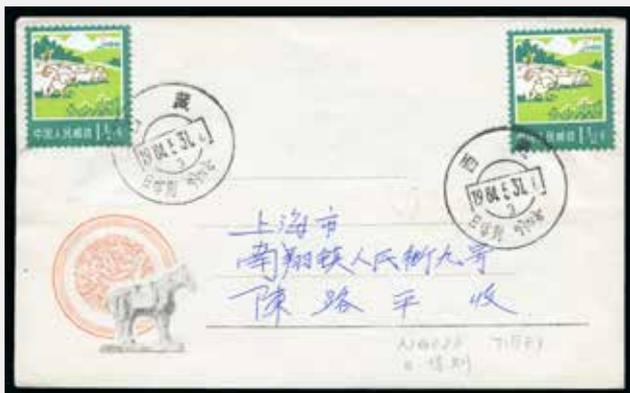 中国人民邮政 1½分
人民邮政 1½分
西藏
1984.5.31.
日喀则
西藏
1984.5.31.
日喀则
上海市
南翔镇人民街九号
陈路平 收
日喀则